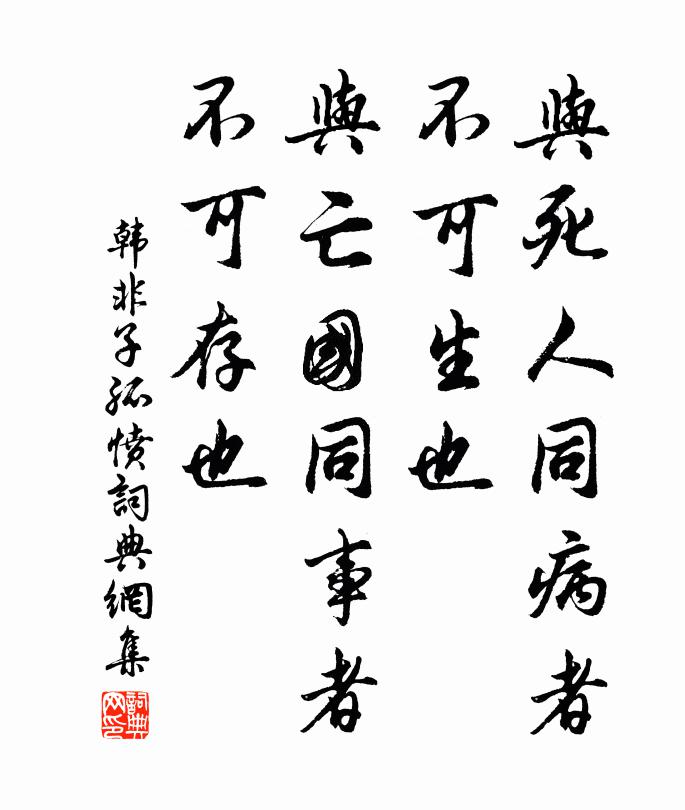 與死人同病者
不可生也
與亡國同事者
不可存也
韩非子孤憤詞典網集
詞典
网印